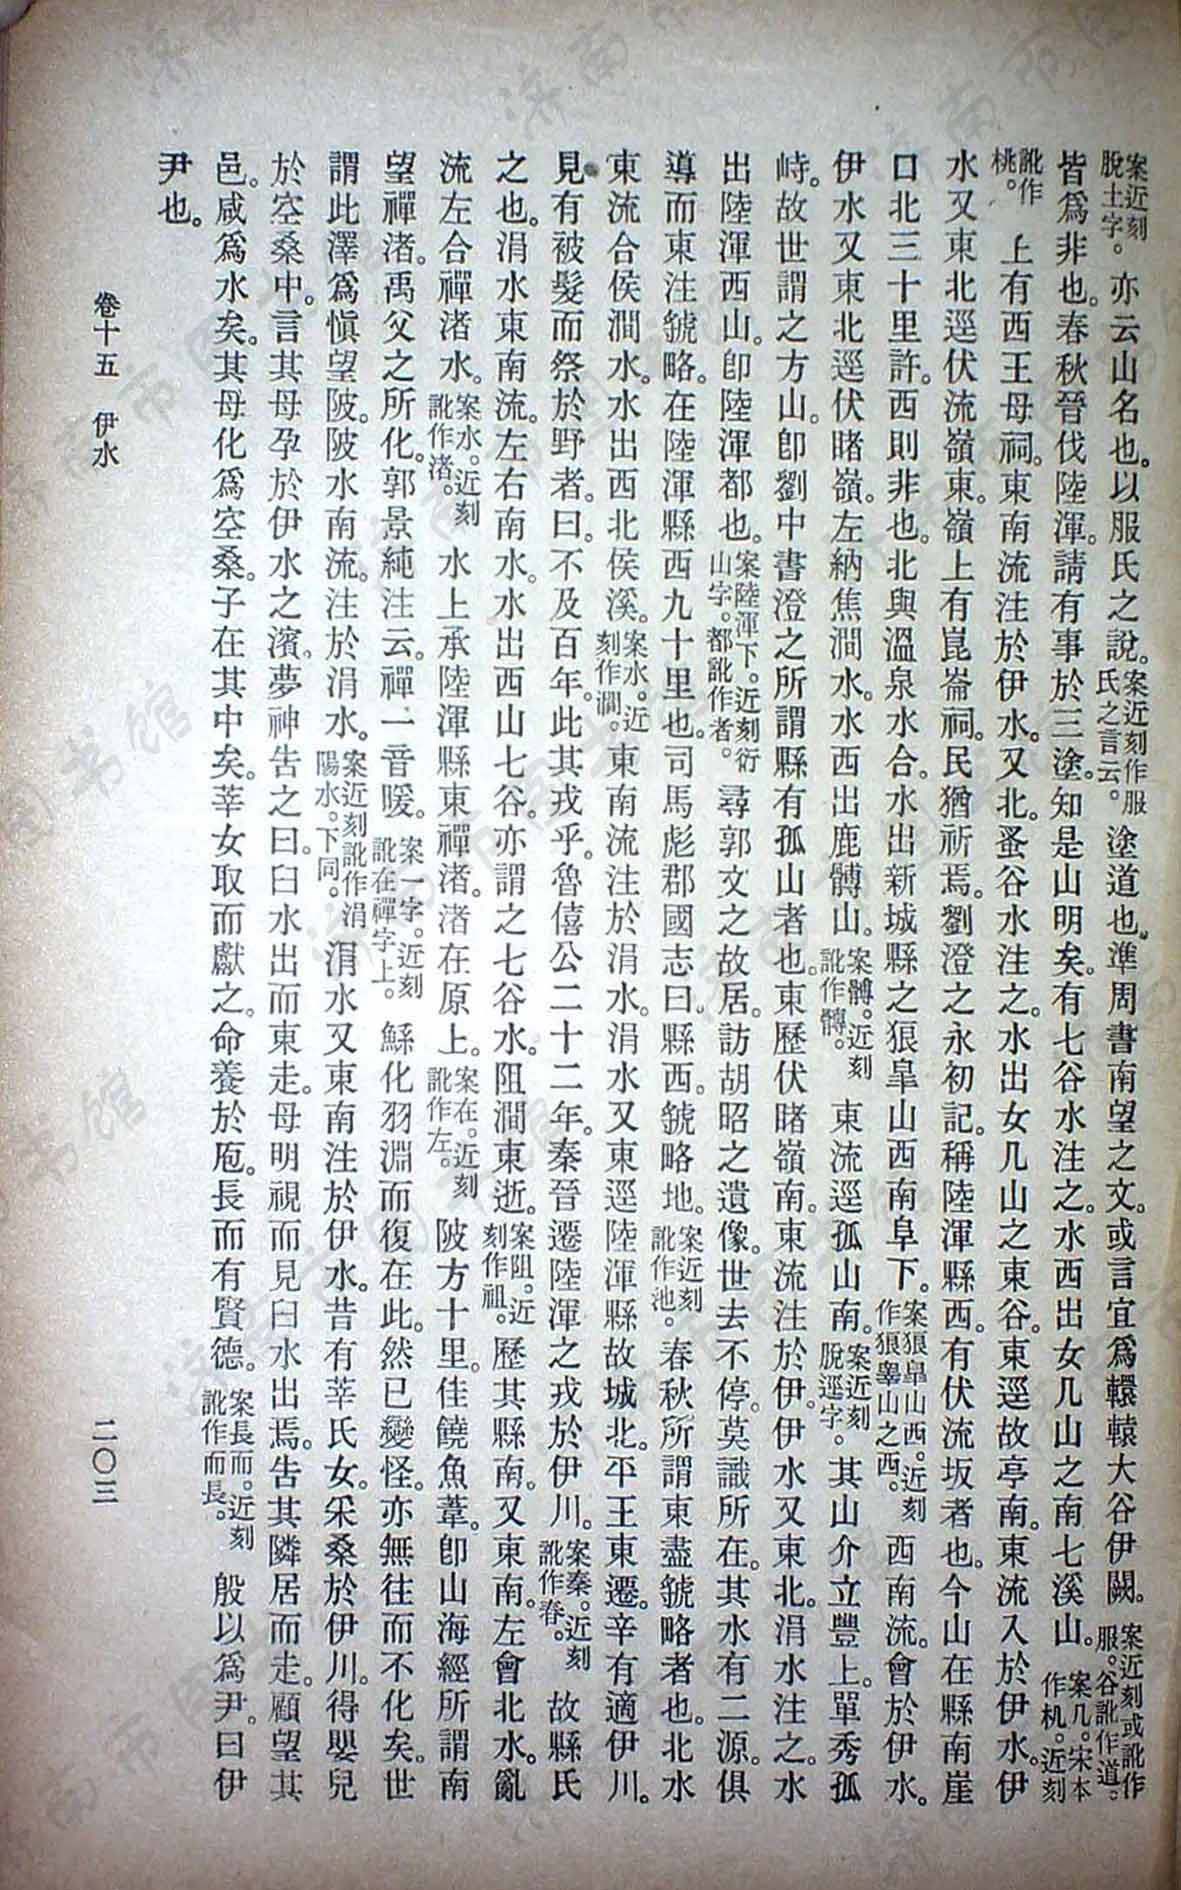 案近刻脫土字。亦云山名也。以服氏之說。案近刻作服氏之言云。塗道也。準周書南望之文。或言宜爲轘轅大谷伊闕。案近刻或訛作服。谷訛作道。
皆爲非也。春秋晉伐陸渾。請有事於三塗。知是山明矣。有七谷水注之。水西出女几山之南七溪山。案几。宋本作机。近刻
訛作桃。上有西王母祠。東南流注於伊水。又北。蚤谷水注之。水出女几山之東谷。東逕故亭南。東流入於伊水。伊
水又東北逕伏流嶺東。嶺上有崑崙祠。民猶祈焉。劉澄之永初記。稱陸渾縣西。有伏流坂者也。今山在縣南崖
口北三十里許。西則非也。北與溫泉水合。水出新城縣之狼皐山西南阜下。案狼皐山西。近刻作狼臯山之西。西南流。會於伊水。
伊水又東北逕伏睹嶺。左納焦澗水。水西出鹿髆山。案髆。近刻訛作髆。東流逕孤山南。案近刻脫逕字。其山介立豐上。單秀孤
峙。故世謂之方山。卽劉中書澄之所謂縣有孤山者也。東歷伏睹嶺南。東流注於伊。伊水又東北。涓水注之。水
出陸渾西山。卽陸渾都也。案陸渾下。近刻衍山字。都訛作者。尋郭文之故居。訪胡昭之遺像。世去不停。莫識所在。其水有二源。俱
導而東注虢略。在陸渾縣西九十里也。司馬彪郡國志曰。縣西。虢略地。案近刻訛作池。春秋所謂東盡虢略者也。北水
東流合侯澗水。水出西北侯溪。案水。近刻作澗。東南流注於涓水。涓水又東逕陸渾縣故城北。平王東遷。辛有適伊川。
見有被髮而祭於野者。曰。不及百年。此其戎乎。魯僖公二十二年。秦晉遷陸渾之戎於伊川。案秦。近刻訛作春。故縣氏
之也。涓水東南流。左右南水。水出西山七谷。亦謂之七谷水。阻澗東逝。案阻。近刻作祖。歷其縣南。又東南。左會北水。亂
流左合禪渚水。案水。近刻訛作渚。水上承陸渾縣東禪渚。渚在原上。案在。近刻訛作左。陂方十里。佳饒魚葦。卽山海經所謂南
望禪渚。禹父之所化。郭景純注云。禪一音暖。案一字。近刻訛在禪字上。鯀化羽淵而復在此。然已變怪。亦無往而不化矣。世
謂此澤爲愼望陂。陂水南流。注於涓水。案近刻訛作涓陽水。下同。涓水又東南注於伊水。昔有莘氏女。采桑於伊川。得嬰兒
於空桑中。言其母孕於伊水之濱。夢神吿之曰。臼水出而東走。母明視而見臼水出焉。吿其隣居而走。顧望其
邑。咸爲水矣。其母化爲空桑。子在其中矣。莘女取而獻之。命養於庖。長而有賢德。案長而。近刻訛作而長。殷以爲尹。曰伊
尹也。
卷十五 伊水 二〇三